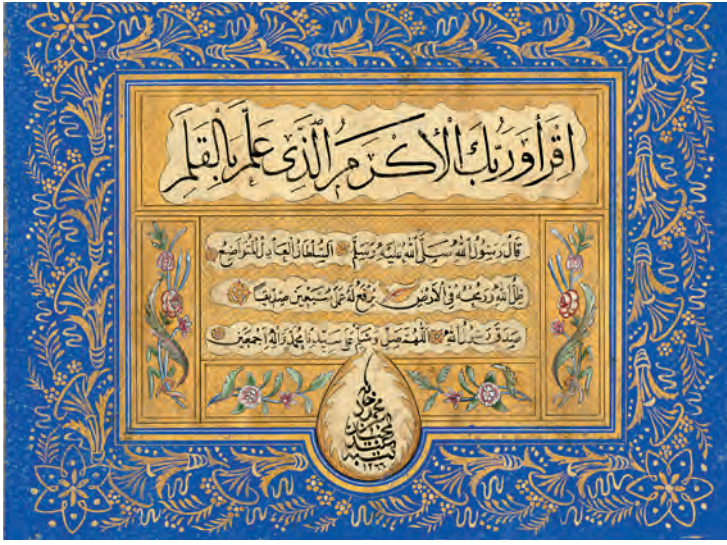 اقرأ وربك الأكرم الذى علم بالقلم
قال رسول الله صلى الله عليه وسلم السلطان العادل المتواضع
ظل الله ورمحه فى الارض يرفع له عمل سبعين صديقا
صدق رسول الله اللهم صل وسلم على سيدنا محمد واله اجمعين
كتبه
١٢٦٦